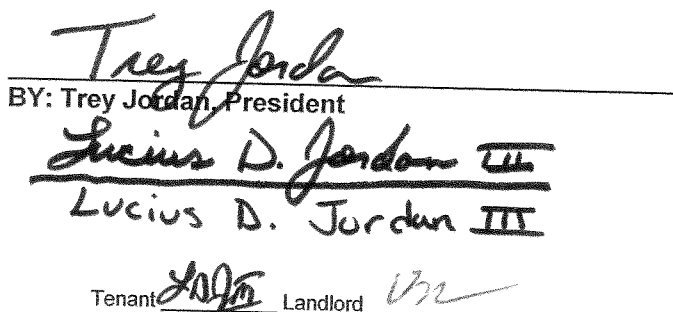 Trey Jordan
BY: Trey Jordan, President
Lucius D. Jordan III
Lucius D. Jordan III
Tenant LDJIII Landlord